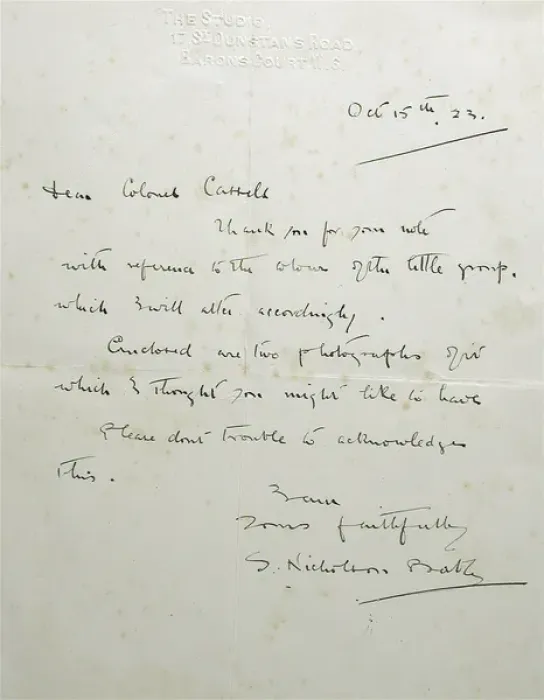 THE STUDIO,
17, ST DUNSTAN'S ROAD,
BARONS COURT. W. 6.
Oct 15th. 23.
Dear Colonel
Thank you for your note
with reference to the colour of the little group.
which I will alter accordingly.
Enclosed are two photographs of it
which I thought you might like to have
Please dont trouble to acknowledge
this.
I am
Yours faithfully
S. Nicholson Babb